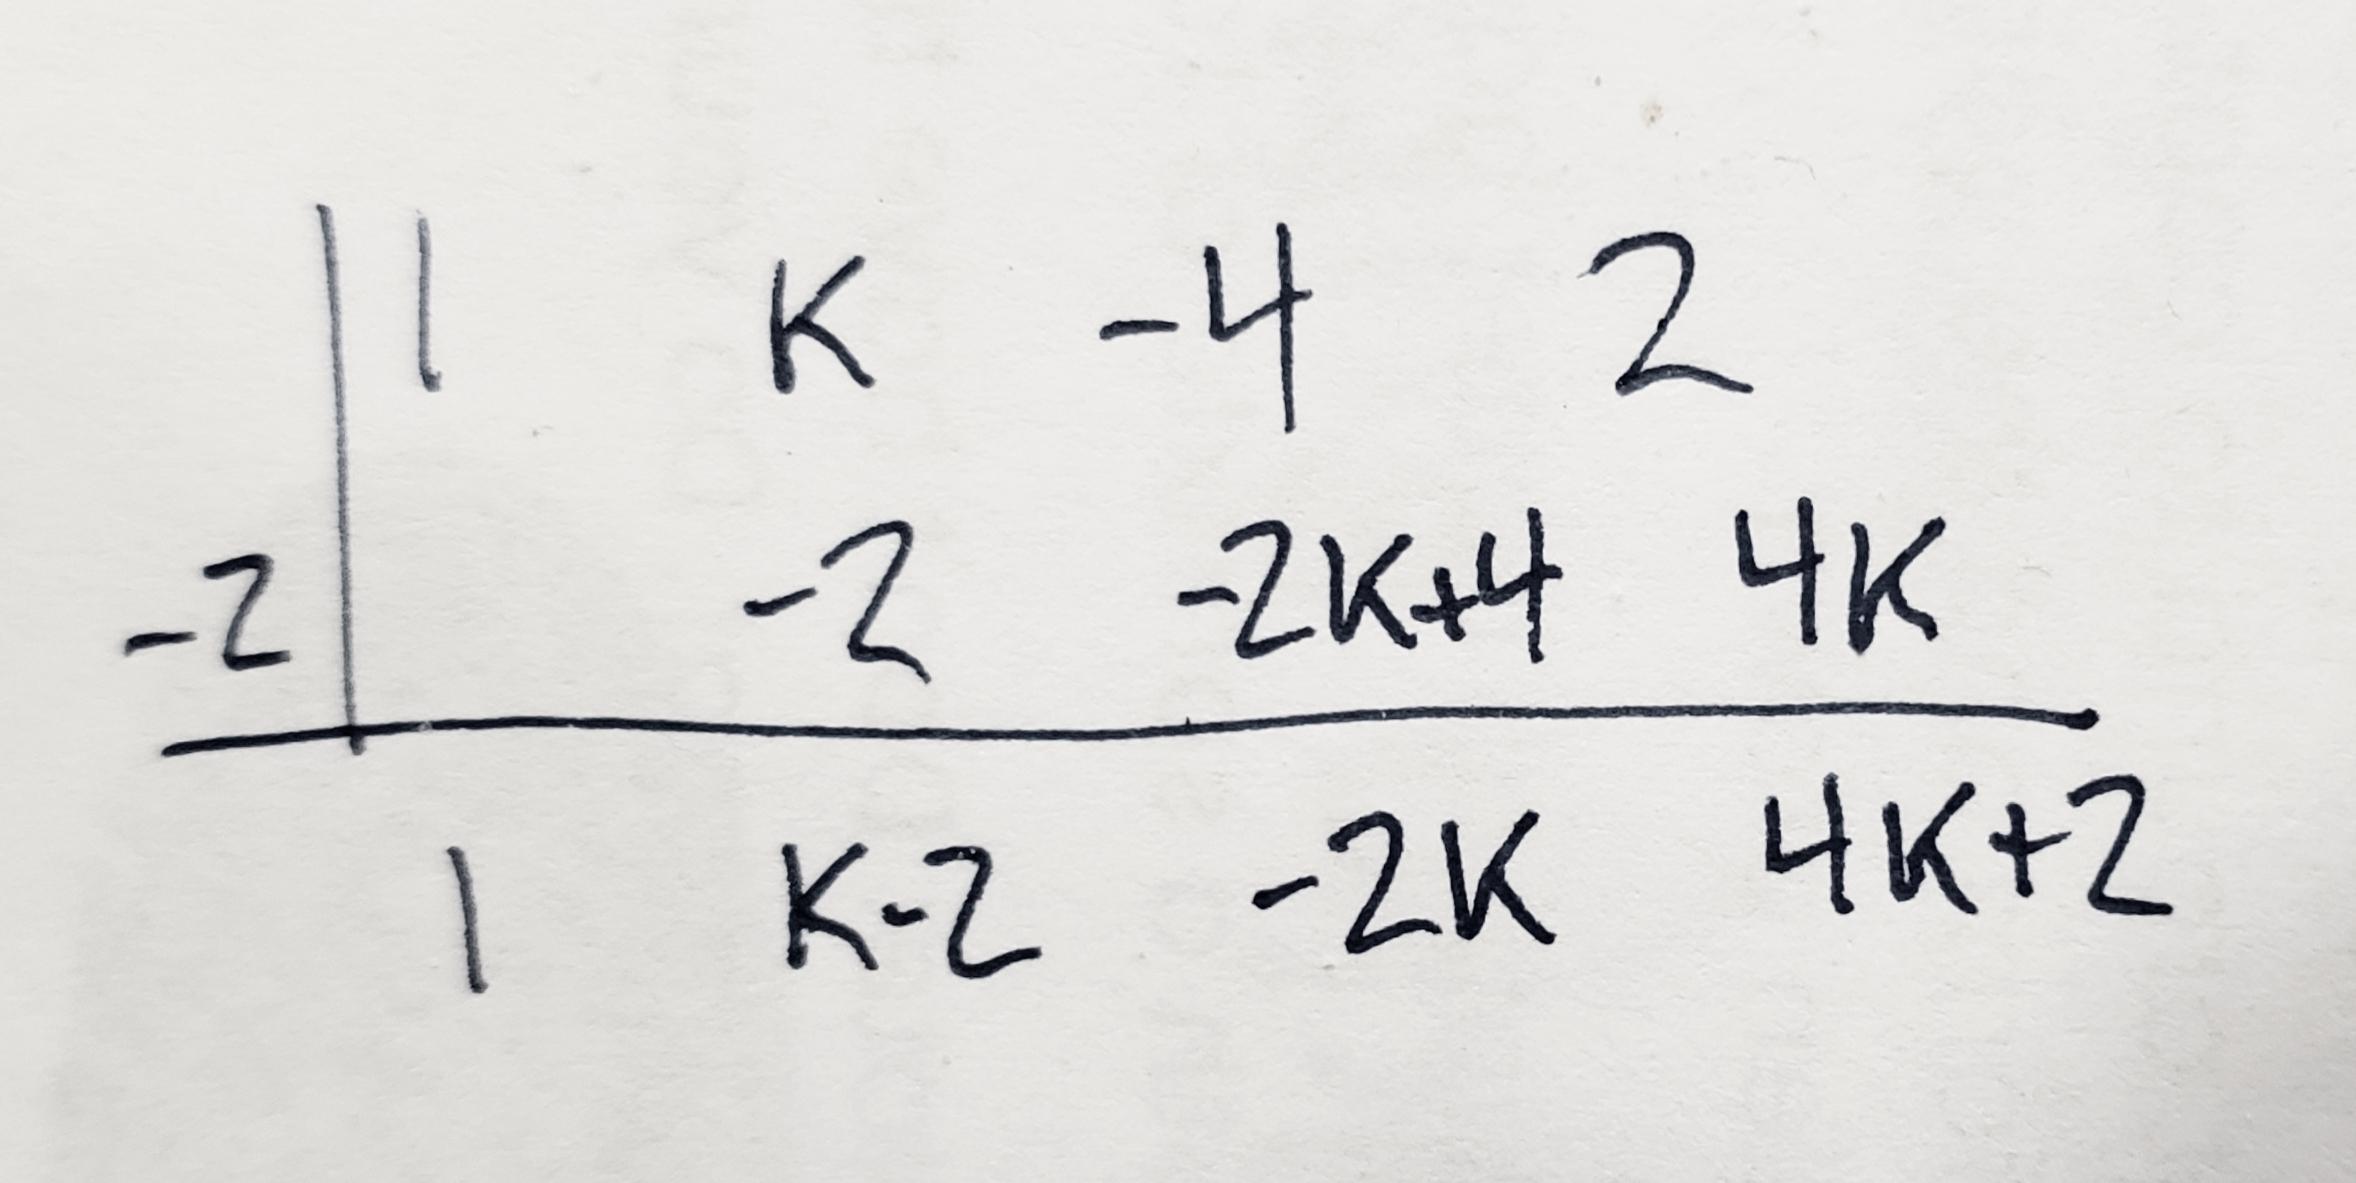 1 K -4 2
-2 -2 -2K+4 4K
1 K-2 -2K 4K+2